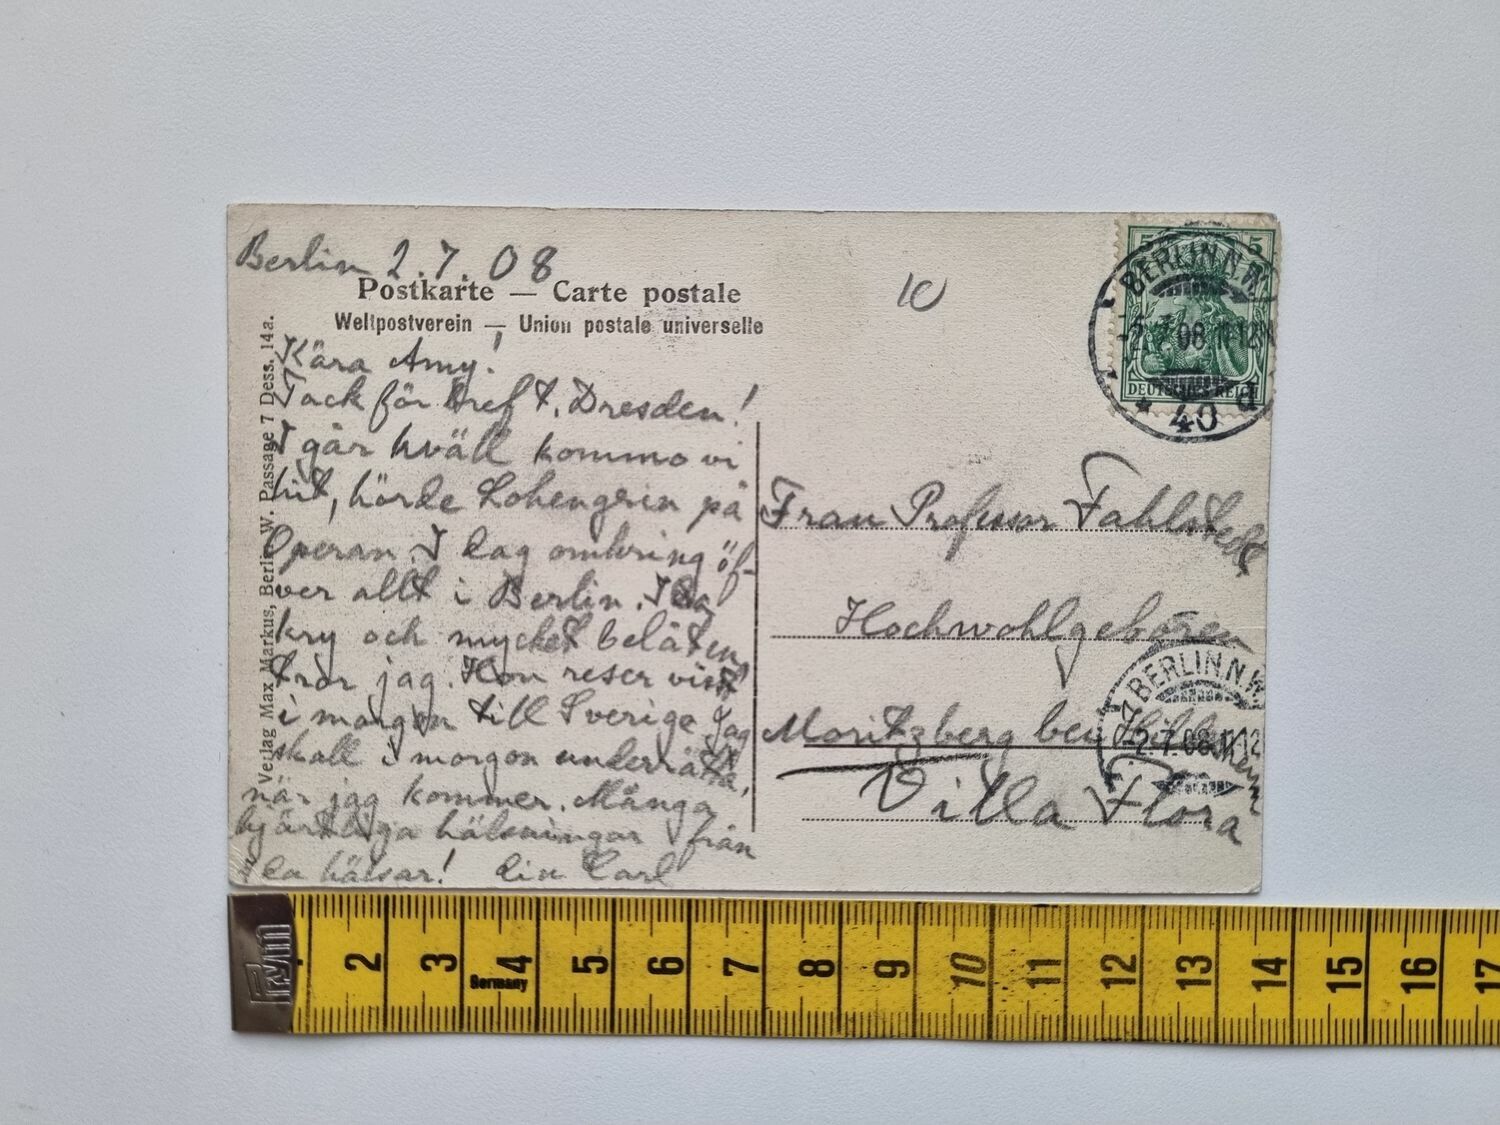 Berlin 2.7.08
Postkarte — Carte postale
Weltpostverein — Union postale universelle
Kära Amy!
Tack för bref t. Dresden!
I går kväll kommo vi
hit, hörde Lohengrin på
Operan. I dag omkring öf-
ver allt i Berlin. Ida
kry och mycket belåten
tror jag. Hon reser visst
i morgon till Sverige. Jag
skall i morgon underrätta,
när jag kommer. Många
hjärtliga hälsningar från
Ida hälsar! din Carl
Verlag Max Markus, Berlin W. Passage 7 Dess. 14a.
10
5 5
DEUTSCHES REICH
BERLIN N.W.
-2.7.08.11-12N
* 40 d
Frau Professor Fahlstedt
Hochwohlgeboren
Moritzberg bei Hildesheim
Villa Flora
BERLIN N.W.
-2.7.08.11-12
Prym
2 3 4 5 6 7 8 9 10 11 12 13 14 15 16 17
Germany